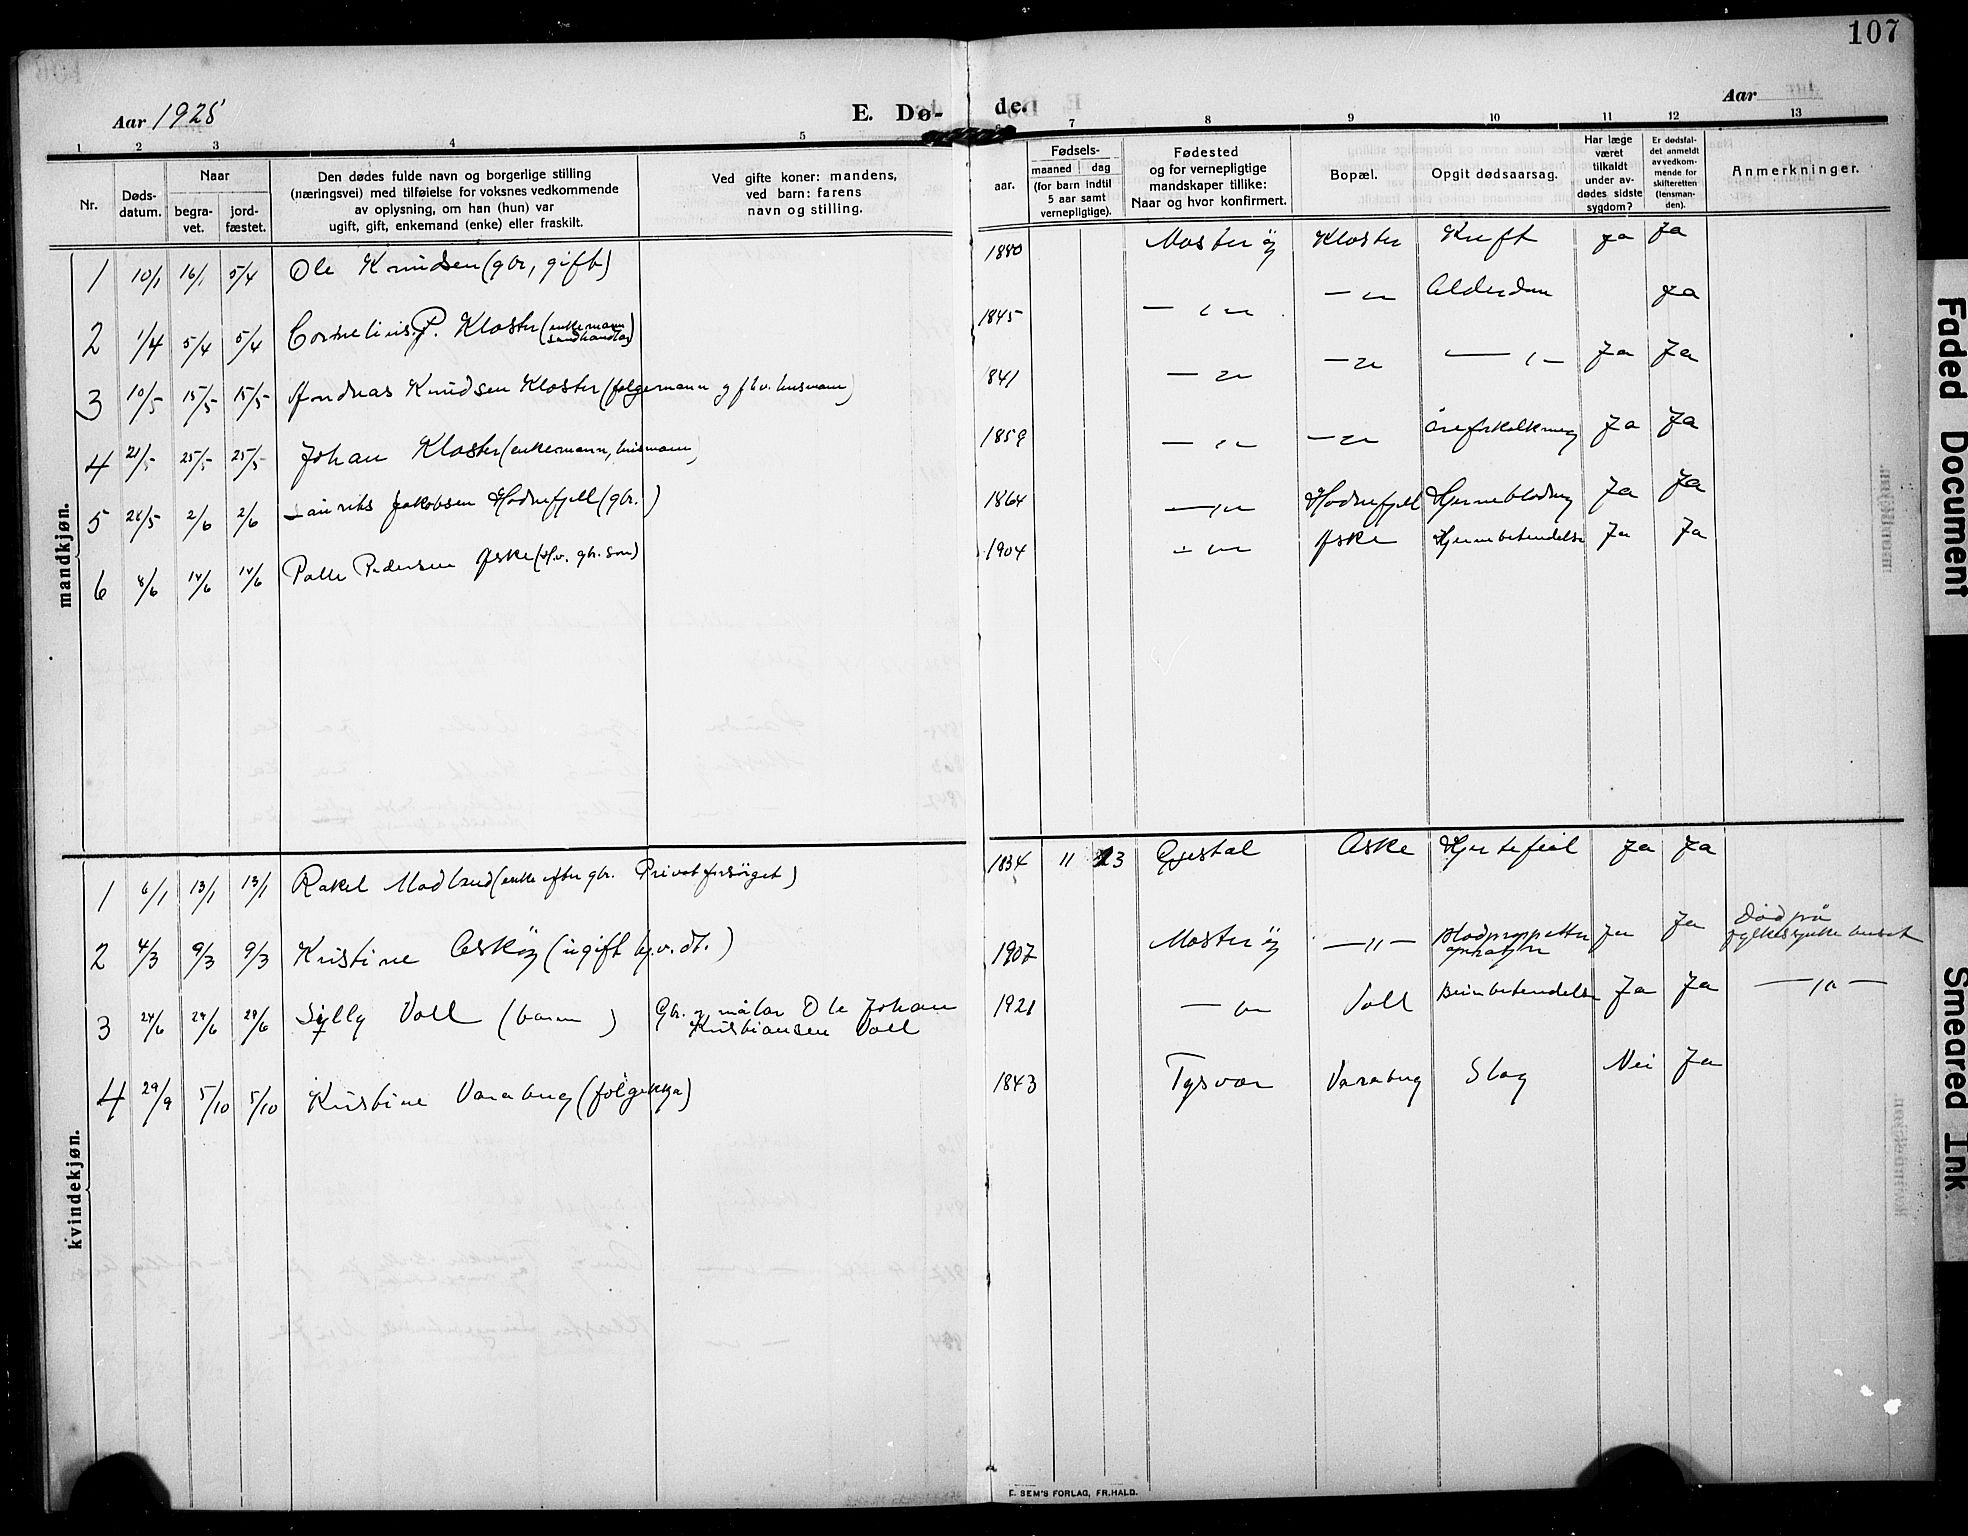 107
Aar 1925
E. Dø-
de.
Aar
1 2 3 4 5 7 8 9 10 11 12 13
Nr.
Døds-
datum.
Naar
begra-
vet.
jord-
fæstet.
Den dødes fulde navn og borgerlige stilling
(næringsvei) med tilføielse for voksnes vedkommende
av oplysning, om han (hun) var
ugift, gift, enkemand (enke) eller fraskilt.
Ved gifte koner: mandens,
ved barn: farens
navn og stilling.
Fødsels-
aar.
maaned dag
(for barn indtil
5 aar samt
vernepligtige).
Fødested
og for vernepligtige
mandskaper tillike:
Naar og hvor konfirmert.
Bopæl.
Opgit dødsaarsag.
Har læge
været
tilkaldt
under av-
dødes sidste
sygdom?
Er dødsfal-
det anmeldt
av vedkom-
mende for
skifteretten
(lensman-
den).
Anmerkninger.
mandkjøn.
1 10/1 16/1 5/4 Ole Knudsen (gbr, gift) 1880 Mosterøy Kloster Kreft ja ja
2 1/4 5/4 5/4 Cornelius P. Kloster (enkemann sandhandlar) 1845 — " — — " Alderdom ja
3 10/5 15/5 15/5 Andreas Knudsen Kloster (følgemann g f hv. husmann) 1841 — " — " — " — Ja Ja
4 21/5 25/5 25/5 Johan Kloster (enkemann, husmann) 1859 — " — — " Åreforkalkning Ja Ja
5 28/5 2/6 2/6 Lauritz Jakobsen Hodnefjell (gbr.) 1864 — " — Hodnefjell Hjerneblødning Ja Ja
6 8/6 14/6 14/6 Palle Pedersen Øske (hv. gbr. søn) 1904 — " — Øske Hjernebetendelse Ja Ja
kvindekjøn.
1 6/1 13/1 13/1 Rakel Madland (enke efter gbr. Privat forsørget) 1834 11 23 Gjestal Aske Hjertefeil Ja Ja
2 4/3 9/3 9/3 Kristine Askøy (ugift hj.v. dt.) 1907 Mosterøy — " — Blodpropp etter Ja Ja Død på
operatjon fylkessjukehuset
3 24/6 29/6 29/6 Silly Voll (barn) Gbr. og målar Ole Johan 1921 — " Voll Beinbetendelse Ja Ja — " —
Kristiansen Voll
4 29/9 5/10 5/10 Kristine Varaberg (følgekkja) 1843 Tysvær Varaberg Slag Nei Ja
E. SEM'S FORLAG, FR.HALD.
Faded Document
Smeared Ink